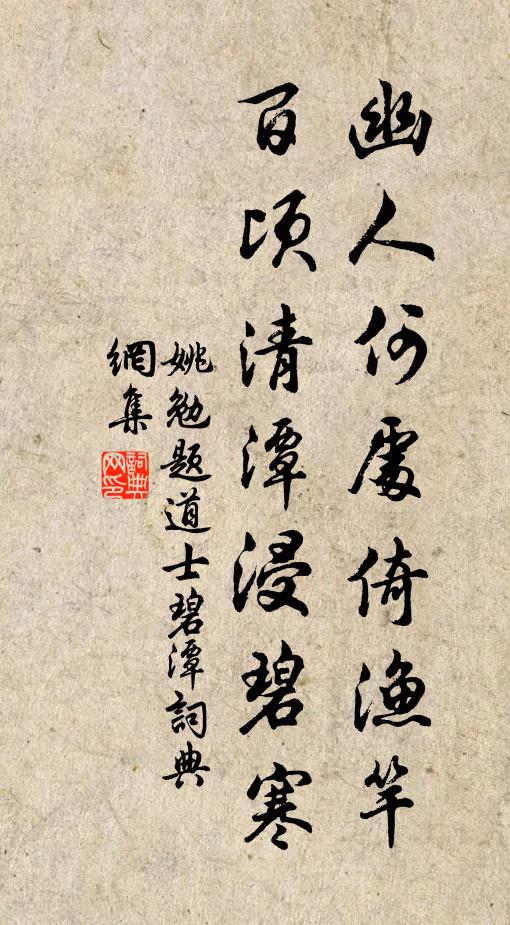 幽人何處倚漁竿
百頃清潭浸碧寒
姚勉題道士碧潭詞典
網集
詞典網印